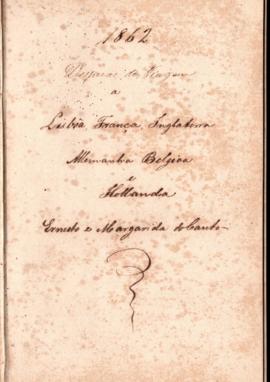 1862
Despezas da Viagem
a
Lisboa, França, Inglaterra
Allemanha Belgica
e
Hollanda
Ernesto e Margarida do Canto